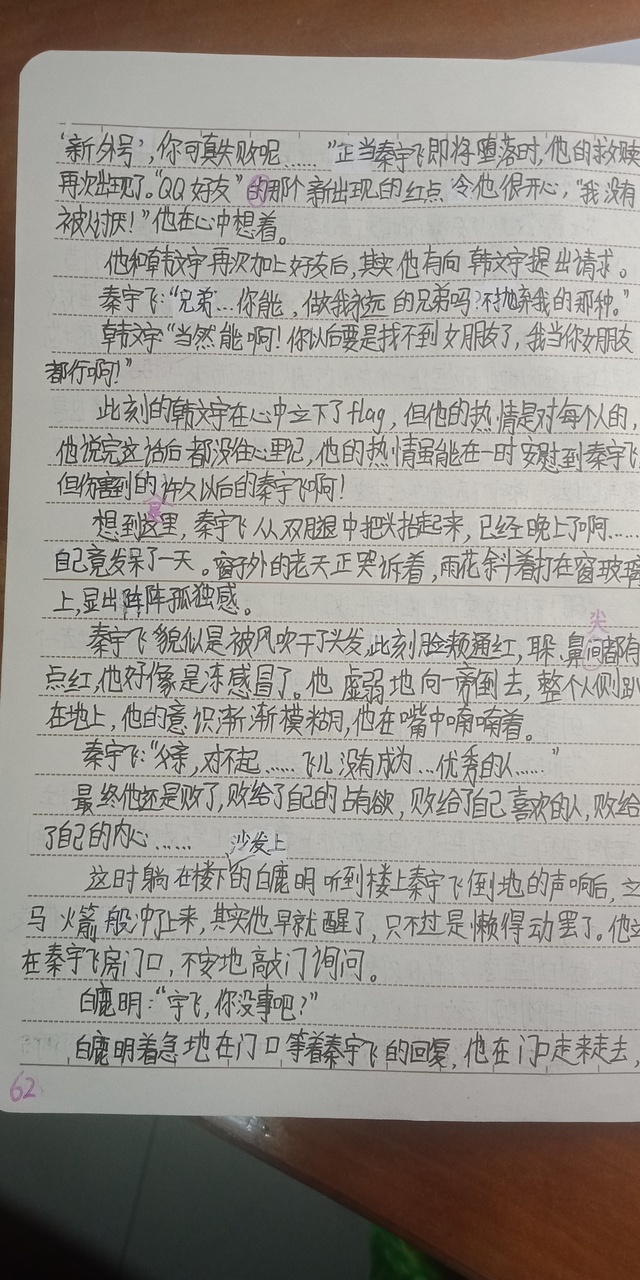 ‘新外号’,你可真失败呢……”正当秦宇飞即将堕落时,他的救赎
再次出现了。“QQ好友”的那个新出现的红点令他很开心,“我没有
被讨厌!”他在心中想着。
他和韩文宇再次加上好友后,其实他有向韩文宇提出请求。
秦宇飞:“兄弟…你能,做我永远的兄弟吗?不抛弃我的那种。”
韩文宇:“当然能啊!你以后要是找不到女朋友了,我当你女朋友
都行啊!”
此刻的韩文宇在心中立下了flag,但他的热情是对每个人的,
他说完这话后都没往心里记,他的热情虽能在一时安慰到秦宇飞
但伤害到的许久以后的秦宇飞啊!
是
想到这里,秦宇飞从双腿中把头抬起来,已经晚上了啊……
自己竟发呆了一天。窗子外的老天正哭诉着,雨花斜着打在窗玻璃
上,显出阵阵孤独感。
尖
秦宇飞貌似是被风吹干了头发,此刻脸颊通红,耳朵、鼻间都有
点红,他好像是冻感冒了。他虚弱地向一旁倒去,整个人侧趴
在地上,他的意识渐渐模糊,他在嘴中喃喃着。
秦宇飞:“父亲,对不起……飞儿没有成为…优秀的人……”
最终他还是败了,败给了自己的占有欲,败给了自己喜欢的人,败给
了自己的内心……
沙发上
这时躺在楼下的白鹿明听到楼上秦宇飞倒地的声响后,立
马火箭般冲了上来,其实他早就醒了,只不过是懒得动罢了。他立
在秦宇飞房门口,不安地敲门询问。
白鹿明:“宇飞,你没事吧?”
白鹿明着急地在门口等着秦宇飞的回复,他在门口走来走去,
62